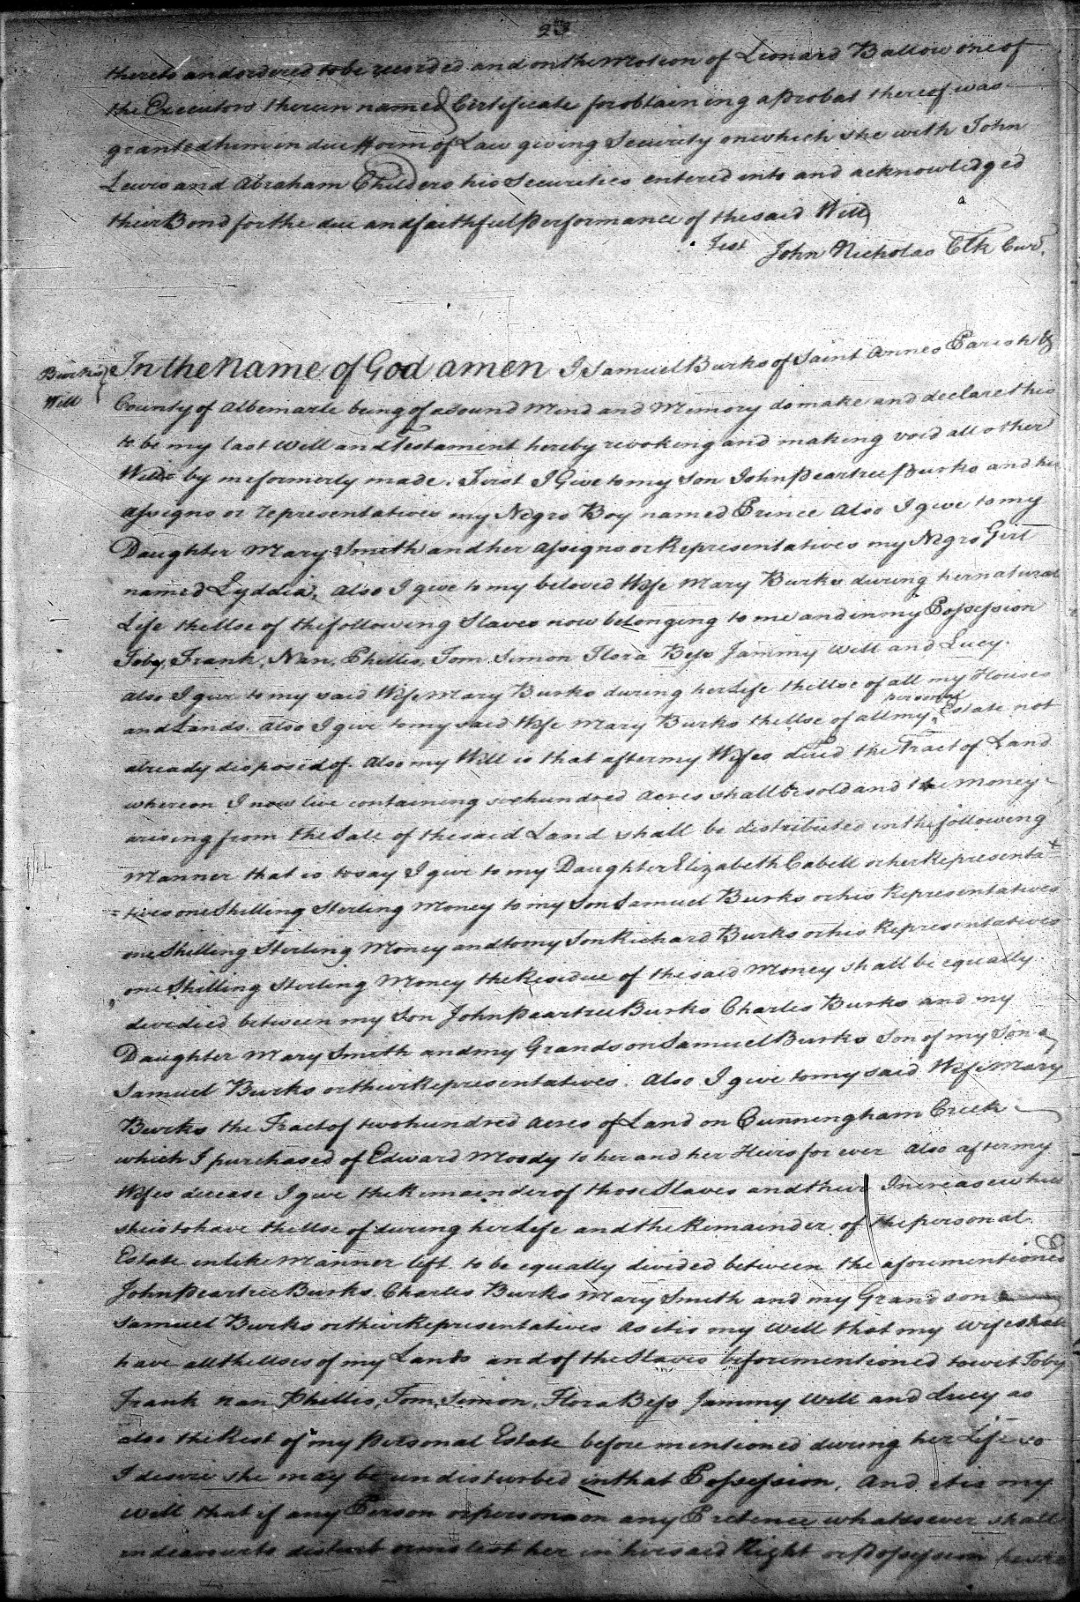 23
thereto and ordered to be recorded and on the Motion of Leonard Ballow one of
the Executors therein named Certificate for obtaining a Probat thereof was
granted him in due fform of Law giving Security on which he with John
Lewis and Abraham Childers his Securities entered into and acknowledged
their Bond for the due and faithful Performance of the said Will
Test John Nicholas Clk Cur.
Burks's Will
In the Name of God amen I Samuel Burks of Saint Annes Parish &
County of Albemarle being of a Sound Mind and Memory do make and declare this
to be my last Will and Testament hereby revoking and making void all other
Wills by me formerly made. First I Give to my Son John Peartree Burks and his
assigns or representatives my Negro Boy named Prince Also I give to my
Daughter Mary Smith and her Assigns or Representatives my Negro Girl
named Lyddia, Also I give to my beloved Wife Mary Burks during her natural
Life the Use of the following Slaves now belonging to me and in my Possession
Toby, Frank, Nan, Phillis, Tom. Simon Flora Bess Jammy Will and Lucy.
also I give to my said Wife Mary Burks during her Life the Use of all my Houses
and Lands. Also I give to my said Wife Mary Burks the Use of all my personal Estate not
already disposed of. Also my Will is that after my Wifes the Tract of Land
whereon I now live containing six hundred Acres shall be sold and the Money
arising from the Sale of the said Land shall be distributed in the following
Manner that is to say I give to my Daughter Elizabeth Cabell or her Representa
=tives one Shilling Sterling Money to my Son Samuel Burks or his Representatives
one Shilling Sterling Money and to my Son Richard Burks or his Representatives
one Shilling Sterling Money the Residue of the said Money shall be equally
devided between my Son John Peartree Burks Charles Burks and my
Daughter Mary Smith and my Grandson Samuel Burks Son of my Son
Samuel Burks or their Representatives. Also I give to my said Wife Mary
Burks the Tract of two hundred Acres of Land on Cunningham Creek
which I purchased of Edward Moody to her and her Heirs for ever Also after my
Wifes decease I give the Remainder of those Slaves and their Increase which
she is to have the Use of during her Life and the Remainder of the personal
Estate in like Manner left to be equally divided between the aforementioned
John Peartree Burks Charles Burks Mary Smith and my Grandson
Samuel Burks or their Representatives As it is my Will that my Wife shall
have all the Uses of my Lands and of the Slaves beforementioned to wit Toby
Frank Nan Phillis, Tom, Simon, Flora Bess Jammy Will and Lucy as
also the Rest of my Personal Estate before mentioned during her Life so
I desire she may be undisturbed in that Possession, And it is my
Will that if any Person or persons on any Pretence whatsoever shall
endeavour to disturb or molest her in her said Right or Possession